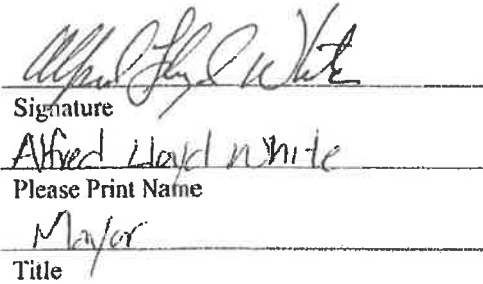 Alfred Lloyd White
Signature
Alfred Lloyd White
Please Print Name
Mayor
Title